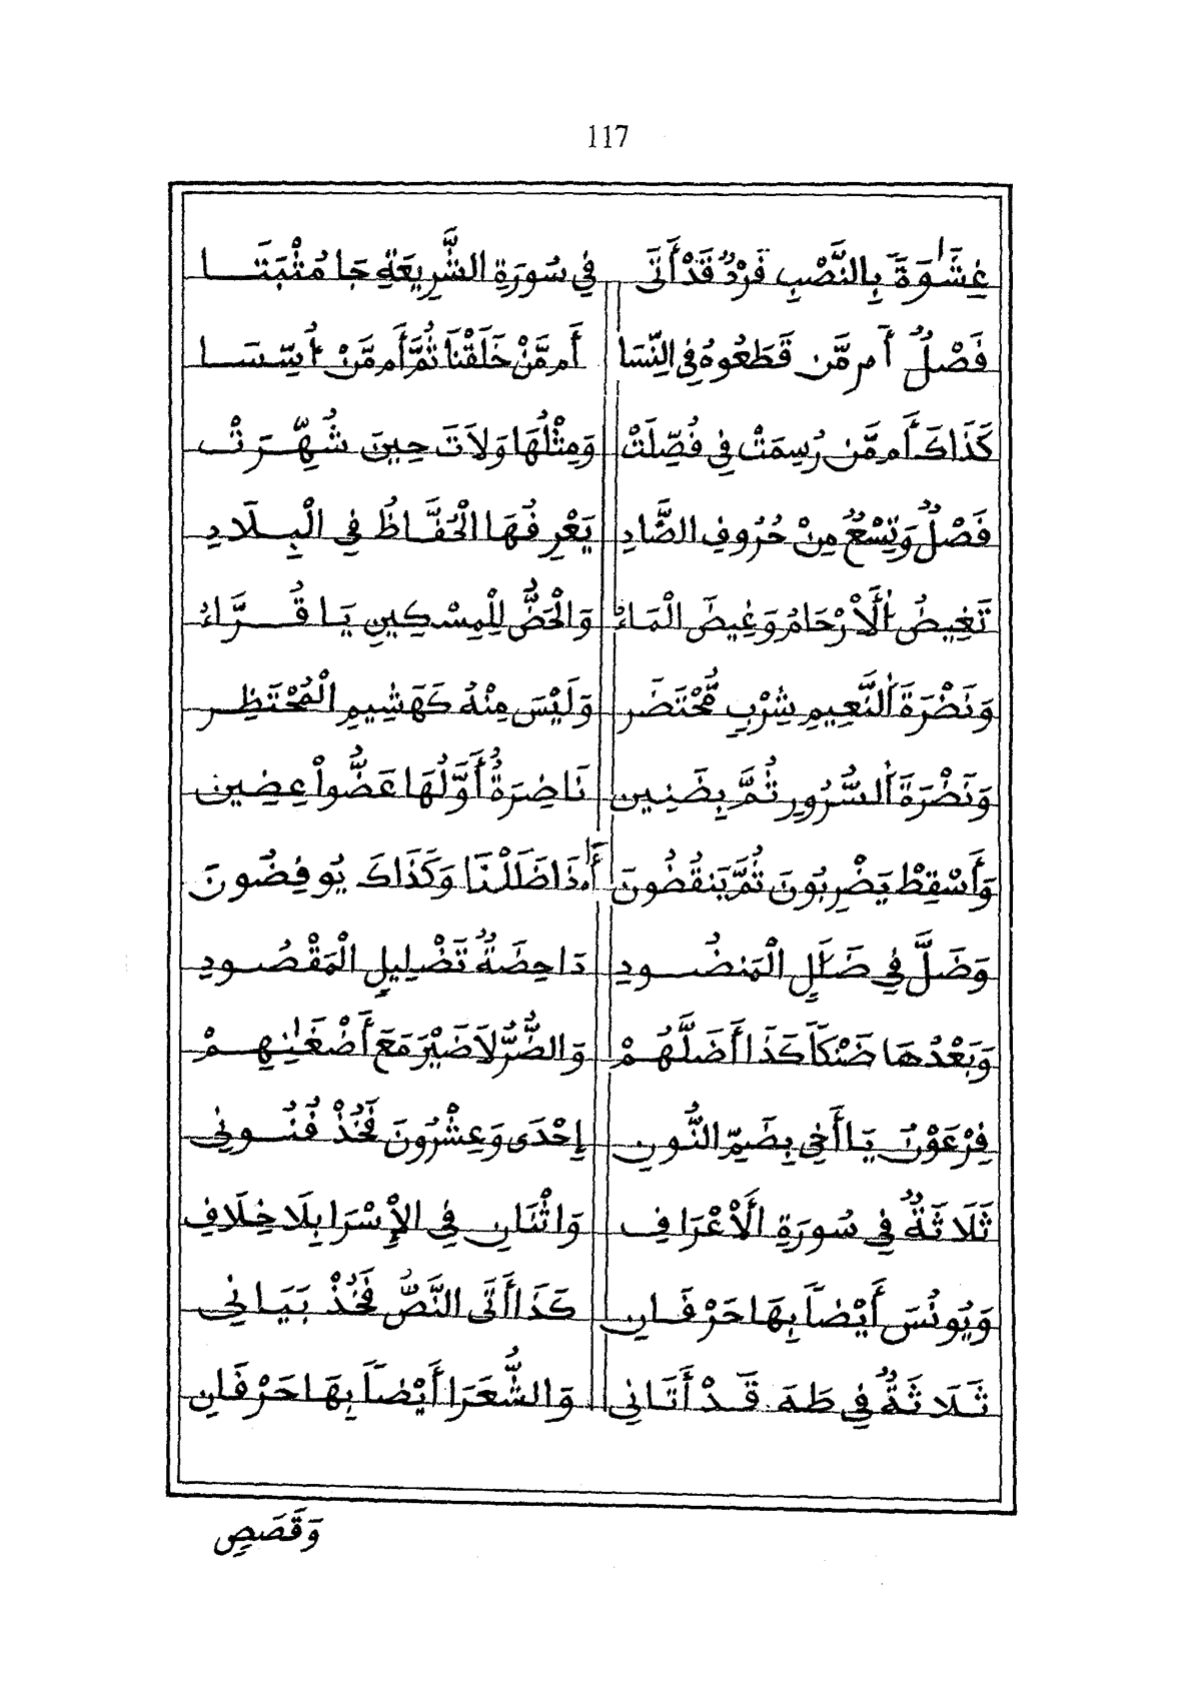 117
غِشَٰوَةَ بِالنَّصْبِ فَرْدٌ قَدْ أَتَى فِي سُورَةِ الشَّرِيعَةِ جَا مُثْبَتَا
فَصْلٌ أَم مَّن قَطَعُوهُ فِي النِّسَا أَم مَّنْ خَلَقْنَا ثُمَّ أَم مَّنْ اُسِّسَا
كَذَاكَ أَم مَّن رُسِمَتْ فِي فُصِّلَتْ وَمِثْلُهَا وَلَاتَ حِينَ شُهِّرَتْ
فَصْلٌ وَتِسْعٌ مِنْ حُرُوفِ الضَّادِ يَعْرِفُهَا الْحُفَّاظُ فِي الْبِلَادِ
تَغِيضُ اُلَارْحَامُ وَغِيضَ الْمَاءُ وَالْحَضُّ لِلْمِسْكِينِ يَا قُرَّاءُ
وَنَضْرَةَ اَلنَّعِيمِ شِرْبٍ مُّحْتَضَر وَلَيْسَ مِنْهُ كَهَشِيمِ الْمُحْتَظِر
وَنَضْرَةَ اَلسُّرُورِ ثُمَّ بِضَنِين نَاضِرَةٌ أَوَّلُهَا عَضُّواْ عِضِين
وَأَسْقِطْ يَضْرِبُونَ ثُمَّ يَنقُضُونَ أَٰ.ذَا ضَلَلْنَا وَكَذَاكَ يُوفِضُونَ
وَضَلَّ فِي ضَلَٰلٍ الْمَنضُودِ دَاحِضَةٌ تَضْلِيلٍ الْمَقْصُودِ
وَبَعْدُهَا ضَنكاً كَذَا أَضَلَّهُمْ وَالضُّرُّ لَا ضَيْرَ مَعَ أَضْغَٰنِهِمْ
فِرْعَوْنُ يَا أَخِي بِضَمِّ النُّونِ إِحْدَى وَعِشْرُونَ فَخُذْ فُنُونِي
ثَلَاثَةٌ فِي سُورَةِ الْأَعْرَافِ وَاثْنَانِ فِي الْإِسْرَا بِلَا خِلَافِ
وَيُونُسَ أَيْضاً بِهَا حَرْفَانِ كَذَا أَتَى النَّصُّ فَخُذْ بَيَانِي
ثَلَاثَةٌ فِي طَهَ قَدْ أَتَانِي وَالشُّعَرَا أَيْضاً بِهَا حَرْفَانِ
وَقَصَصٍ